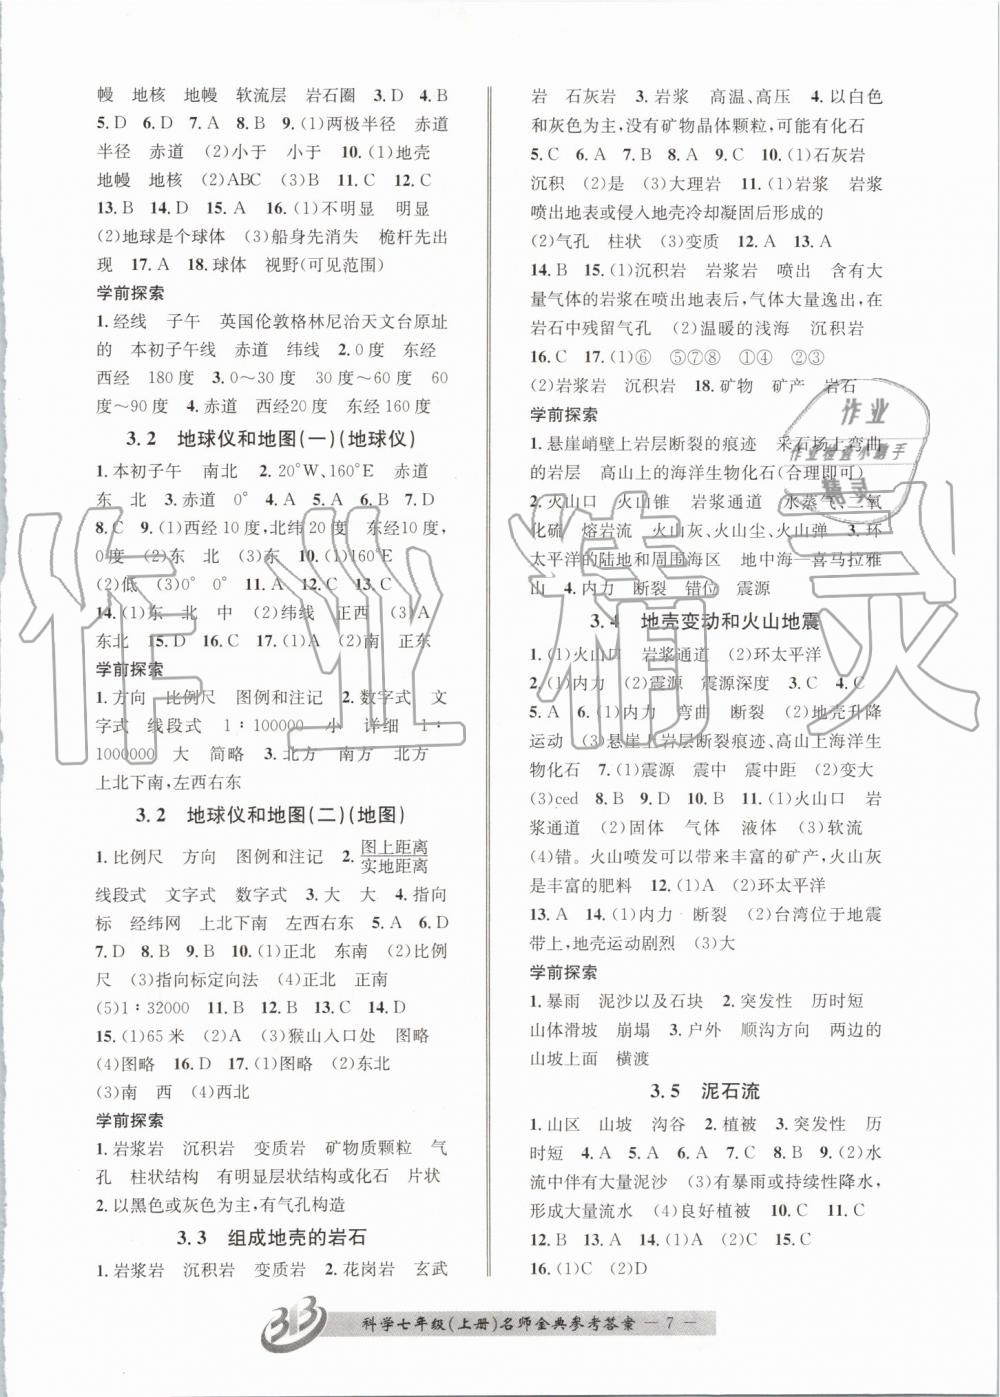 幔　地核　地幔　软流层　岩石圈　3.D　4.B
5.D　6.D　7.A　8.B　9.(1)两极半径　赤道
半径　赤道　(2)小于　小于　10.(1)地壳
地幔　地核　(2)ABC　(3)B　11.C　12.C
13.B　14.D　15.A　16.(1)不明显　明显
(2)地球是个球体　(3)船身先消失　桅杆先出
现　17.A　18.球体　视野(可见范围)
学前探索
1.经线　子午　英国伦敦格林尼治天文台原址
的　本初子午线　赤道　纬线　2.0度　东经
西经　180度　3.0～30度　30度～60度　60
度～90度　4.赤道　西经20度　东经160度
3.2　地球仪和地图(一)(地球仪)
1.本初子午　南北　2.20°W、160°E　赤道
东　北　3.赤道　0°　4.A　5.A　6.B　7.D
8.C　9.(1)西经10度,北纬20度　东经10度,
0度　(2)东　北　(3)D　10.(1)160°E
(2)低　(3)0°　0°　11.A　12.A　13.C
14.(1)东　北　中　(2)纬线　正西　(3)A
东北　15.D　16.C　17.(1)A　(2)南　正东
学前探索
1.方向　比例尺　图例和注记　2.数字式　文
字式　线段式　1∶100000　小　详细　1∶
1000000　大　简略　3.北方　南方　北方
上北下南,左西右东
3.2　地球仪和地图(二)(地图)
1.比例尺　方向　图例和注记　2.图上距离/实地距离
线段式　文字式　数字式　3.大　大　4.指向
标　经纬网　上北下南　左西右东　5.A　6.D
7.D　8.B　9.B　10.(1)正北　东南　(2)比例
尺　(3)指向标定向法　(4)正北　正南
(5)1∶32000　11.B　12.B　13.C　14.D
15.(1)65米　(2)A　(3)猴山入口处　图略
(4)图略　16.D　17.(1)图略　(2)东北
(3)南　西　(4)西北
学前探索
1.岩浆岩　沉积岩　变质岩　矿物质颗粒　气
孔　柱状结构　有明显层状结构或化石　片状
2.以黑色或灰色为主,有气孔构造
3.3　组成地壳的岩石
1.岩浆岩　沉积岩　变质岩　2.花岗岩　玄武
岩　石灰岩　3.岩浆　高温、高压　4.以白色
和灰色为主,没有矿物晶体颗粒,可能有化石
5.C　6.A　7.BB　8.C　9.C　10.(1)石灰岩
沉积　(2)是　(3)大理岩　11.(1)岩浆　岩浆
喷出地表或侵入地壳冷却凝固后形成的
(2)气孔　柱状　(3)变质　12.A　13.A
14.B　15.(1)沉积岩　岩浆岩　喷出　含有大
量气体的岩浆在喷出地表后,气体大量逸出,在
岩石中残留气孔　(2)温暖的浅海　沉积岩
16.C　17.(1)⑥　⑤⑦⑧　①④　②③
(2)岩浆岩　沉积岩　18.矿物　矿产　岩石
学前探索
1.悬崖峭壁上岩层断裂的痕迹　采石场上弯曲
的岩层　高山上的海洋生物化石(合理即可)
2.火山口　火山锥　岩浆通道　水蒸气、二氧
化硫　熔岩流　火山灰、火山尘、火山弹　3.环
太平洋的陆地和周围海区　地中海—喜马拉雅
山　4.内力　断裂　错位　震源
3.4　地壳变动和火山地震
1.(1)火山口　岩浆通道　(2)环太平洋
2.(1)内力　(2)震源　震源深度　3.C　4.C
5.A　6.(1)内力　弯曲　断裂　(2)地壳升降
运动　(3)悬崖上岩层断裂痕迹,高山上海洋生
物化石　7.(1)震源　震中　震中距　(2)变大
(3)ced　8.B　9.B　10.B　11.(1)火山口　岩
浆通道　(2)固体　气体　液体　(3)软流
(4)错。火山喷发可以带来丰富的矿产,火山灰
是丰富的肥料　12.(1)A　(2)环太平洋
13.A　14.(1)内力　断裂　(2)台湾位于地震
带上,地壳运动剧烈　(3)大
学前探索
1.暴雨　泥沙以及石块　2.突发性　历时短
山体滑坡　崩塌　3.户外　顺沟方向　两边的
山坡上面　横渡
3.5　泥石流
1.山区　山坡　沟谷　2.植被　3.突发性　历
时短　4.A　5.A　6.D　7.A　8.B　9.(2)水
流中伴有大量泥沙　(3)有暴雨或持续性降水,
形成大量流水　(4)良好植被　10.C　11.C
12.B　13.A　14.C　15.C
16.(1)C　(2)D
科学七年级(上册)名师金典参考答案 — 7 —
作业
作业检查小助手
精灵
作业精灵